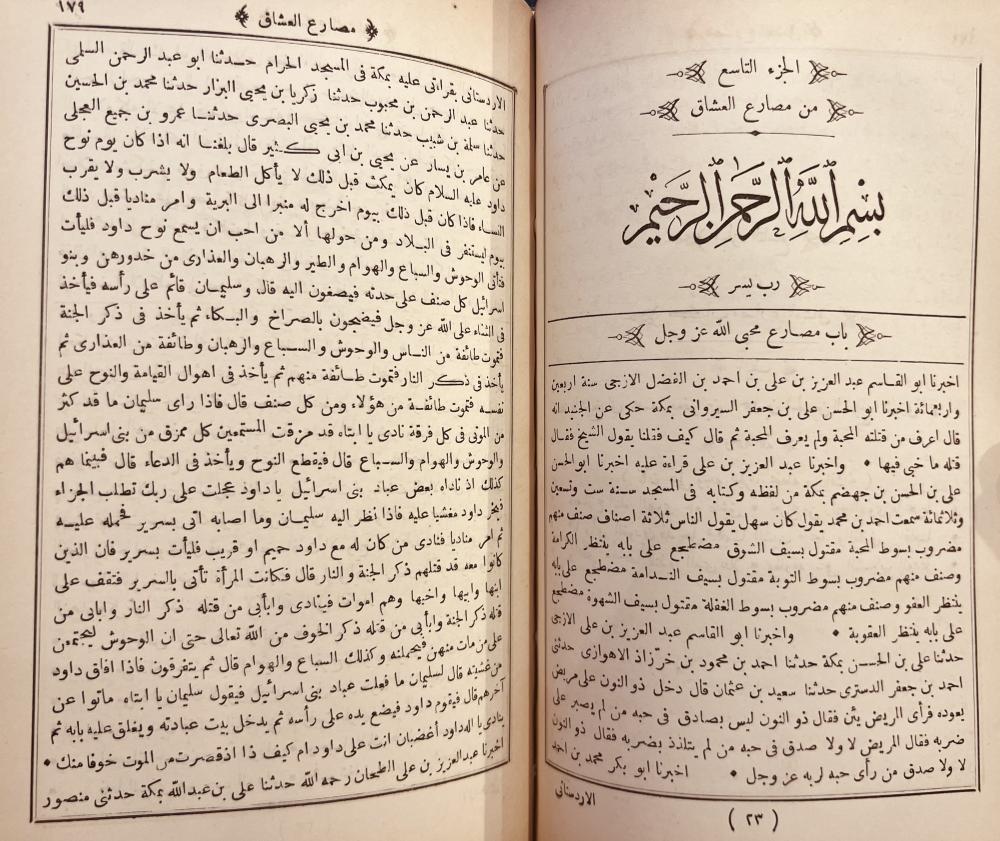 الجزء التاسع
من مصارع العشاق
بسم الله الرحمن الرحيم
رب يسر
باب مصارع محبي الله عز وجل
اخبرنا ابو القاسم عبد العزيز بن على بن احمد بن الفضل الازجى سنة اربعين
واربعمائة اخبرنا ابو الحسن على بن جعفر السيروانى بمكة حكى عن الجنيد انه
قال اعرف من قتلته المحبة ولم يعرف المحبة ثم قال كيف فقلنا يقول الشيخ فقال
قتله ما خبى فيها • واخبرنا عبد العزيز بن على قراءة عليه اخبرنا ابو الحسن
على بن الحسن بن جهضم بمكة من لفظه وكتابه فى المسجد سنة ست وتسعين
وثلاثمائة سمعت احمد بن محمد يقول كان سهل يقول الناس ثلاثة اصناف صنف منهم
مضروب بسوط المحبة مقتول بسيف الشوق مضطجع على بابه ينتظر الكرامة
وصنف منهم مضروب بسوط التوبة مقتول بسيف الندامة مضطجع على بابه
ينتظر العفو وصنف منهم مضروب بسوط الغفلة مقتول بسيف الشهوة مضطجع
على بابه ينتظر العقوبة • واخبرنا ابو القاسم عبد العزيز بن على الازجى
حدثنا على بن الحسن بمكة حدثنا احمد بن محمود بن خرّزاذ الاهوازى حدثنى
احمد بن جعفر الدسترى حدثنا سعيد بن عثمان قال دخل ذو النون على مريض
يعوده فرأى المريض يئن فقال ذو النون ليس بصادق فى حبه من لم يصبر على
ضربه فقال المريض لا ولا صدق فى حبه من لم يتلذذ بضربه فقال ذو النون
لا ولا صدق من رأى حبه لربه عز وجل • اخبرنا ابو بكر محمد بن احمد
الاردستاني
( ٢٣ )
١٧٩
مصارع العشاق
الاردستانى بقراءتى عليه بمكة فى المسجد الحرام حدثنا ابو عبد الرحمن السلمى
حدثنا عبد الرحمن بن محبوب حدثنا زكريا بن يحيى البزار حدثنا محمد بن الحسين
حدثنا سلمة بن شبيب حدثنا محمد بن يحيى البصرى حدثنا عمرو بن جميع العجلى
عن عامر بن يسار عن يحيى بن ابى كثير قال بلغنا انه اذا كان يوم نوح
داود عليه السلام كان يمكث قبل ذلك لا يأكل الطعام ولا يشرب ولا يقرب
النساء فاذا كان قبل ذلك بيوم اخرج له منبرا الى البرية وامر مناديا قبل ذلك
بيوم ليستنفر فى البلاد ومن حولها ألا من احب ان يسمع نوح داود فليأت
فتأتى الوحوش والسباع والهوام والطير والرهبان والعذارى من خدورهن وبنو
اسرائيل كل صنف على حدته فيصغون اليه قال وسليمان قائم على رأسه فيأخذ
فى الثناء على الله عز وجل فيضجون بالصراخ والبكاء ثم يأخذ فى ذكر الجنة
فتموت طائفة من الناس والوحوش والسباع والرهبان وطائفة من العذارى ثم
يأخذ فى ذكر النار فتموت طائفة منهم ثم يأخذ فى اهوال القيامة والنوح على
نفسه فتموت طائفة من هؤلاء ومن كل صنف قال فاذا راى سليمان ما قد كثر
من الموتى فى كل فرقة نادى يا ابتاه قد مزقت المستمعين كل ممزق من بنى اسرائيل
والوحوش والهوام والسباع قال فيقطع النوح ويأخذ فى الدعاء قال فبينما هم
كذلك اذ ناداه بعض عباد بنى اسرائيل يا داود عجلت على ربك تطلب الجزاء
فيخر داود مغشيا عليه فاذا نظر اليه سليمان وما اصابه اتى بسرير فحمله عليه
ثم امر مناديا فنادى من كان له مع داود حميم او قريب فليأت بسرير فان الذين
كانوا معه قد قتلهم ذكر الجنة والنار قال فكانت المرأة تأتى بالسرير فتقف على
ابنها وابيها واخيها وهم اموات فينادى وابأبى من قتله ذكر النار وابأبى من
قتله ذكر الجنة وابأبى من قتله ذكر الخوف من الله تعالى حتى ان الوحوش ليجتمعن
على من مات منهن فيحملنه وكذلك السباع والهوام قال ثم يتفرقون فاذا افاق داود
من غشيته قال لسليمان ما فعلت عباد بنى اسرائيل فيقول سليمان يا ابتاه ماتوا عن
آخرهم قال فيقوم داود فيضع يده على رأسه ثم يدخل بيت عبادته ويغلق عليه بابه ثم
ينادى يا اله داود أغضبان انت على داود ام كيف ذا اذ قصرت من الموت خوفا منك •
اخبرنا عبد العزيز بن على الطحان رحمه الله حدثنا على بن عبد الله بمكة حدثنى منصور